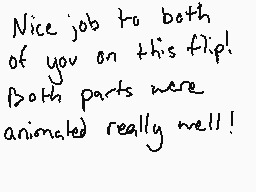 Nice job to both
of you on this flip!
Both parts were
animated really well!